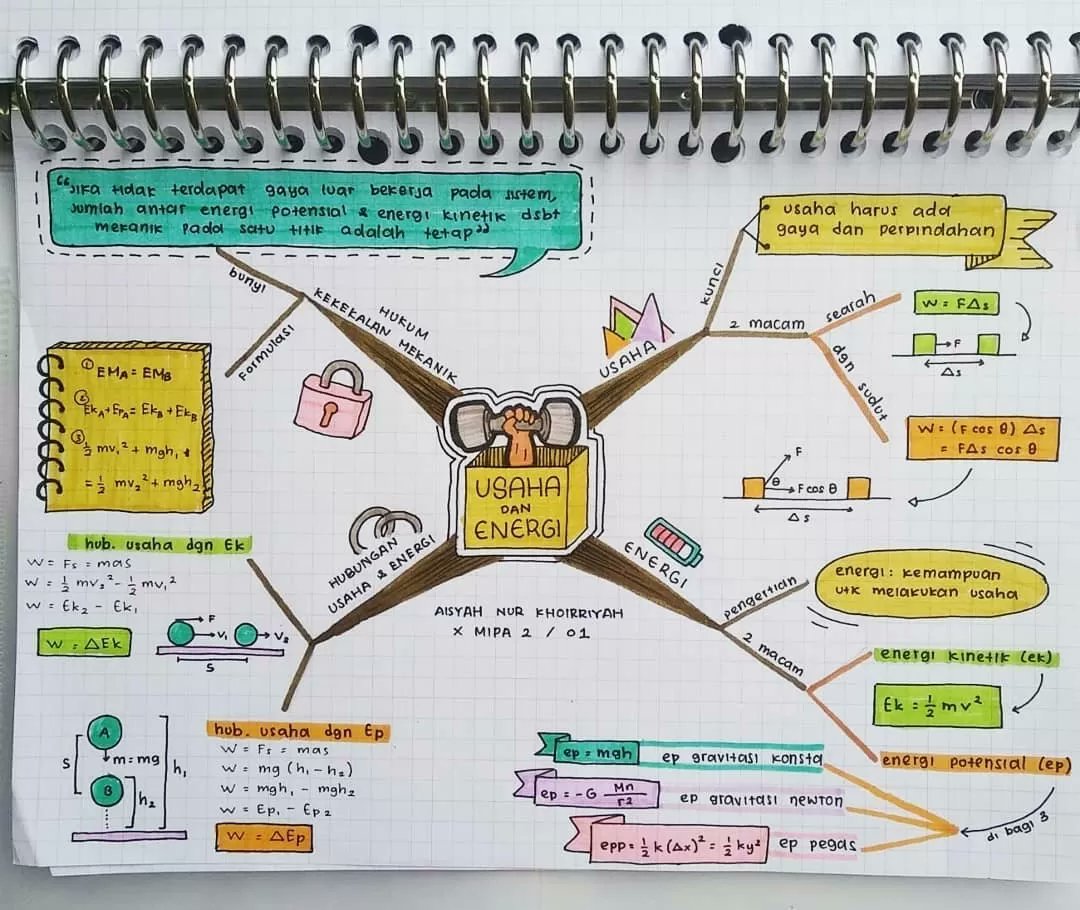 "Jika tidak terdapat gaya luar bekerja pada sistem,
jumlah antar energi potensial & energi kinetik dsbt
mekanik pada satu titik adalah tetap"
bunyi
Formulasi
HUKUM
KEKEKALAN MEKANIK
① EMA = EMB
② EkA + EPA = EkB + EkB
③ ½ mv₁² + mgh₁
= ½ mv₂² + mgh₂
USAHA
kunci
usaha harus ada
gaya dan perpindahan
2 macam
searah
W = FΔs
F
Δs
dgn sudut
W = (F cos θ) Δs
= FΔs cos θ
F
θ
F cos θ
Δs
USAHA
DAN
ENERGI
AISYAH NUR KHOIRRIYAH
X MIPA 2 / 01
HUBUNGAN
USAHA & ENERGI
hub. usaha dgn Ek
W = Fs = mas
W = ½ mv₂² - ½ mv₁²
W = Ek₂ - Ek₁
W = ΔEk
F
V₁
V₂
S
hub. usaha dgn Ep
W = Fs = mas
W = mg (h₁ - h₂)
W = mgh₁ - mgh₂
W = Ep₁ - Ep₂
W = ΔEp
A
S
m = mg
h₁
B
h₂
ENERGI
pengertian
energi : kemampuan
utk melakukan usaha
2 macam
energi kinetik (ek)
Ek = ½ mv²
energi potensial (ep)
di bagi 3
ep = mgh
ep gravitasi konsta
ep = -G Mn/r2
ep gravitasi newton
epp = ½ k (Δx)² = ½ ky²
ep pegas